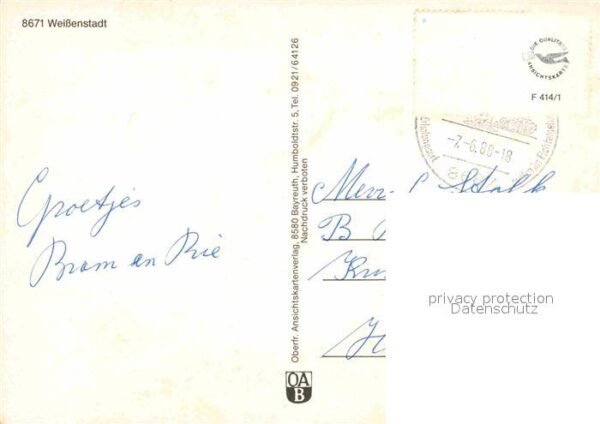 8671 Weißenstadt
Groetjes
Bram en Rie
Oberfr. Ansichtskartenverlag, 8580 Bayreuth, Humboldtstr. 5, Tel. 0921/64126
Nachdruck verboten
OA
B
DIE QUALITÄTS
ANSICHTSKARTE
F 414/1
Erholungsort
-7.-6.88-18
Mevr.
B
privacy protection
Datenschutz